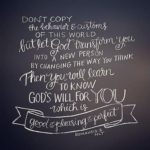 DON'T COPY
the BEHAVIOR & CUSTOMS
OF THIS WORLD
but let God transform you
INTO A NEW PERSON
BY CHANGING THE WAY YOU THINK
Then you will learn
TO KNOW
GOD'S WILL for YOU
which is
good & pleasing & perfect